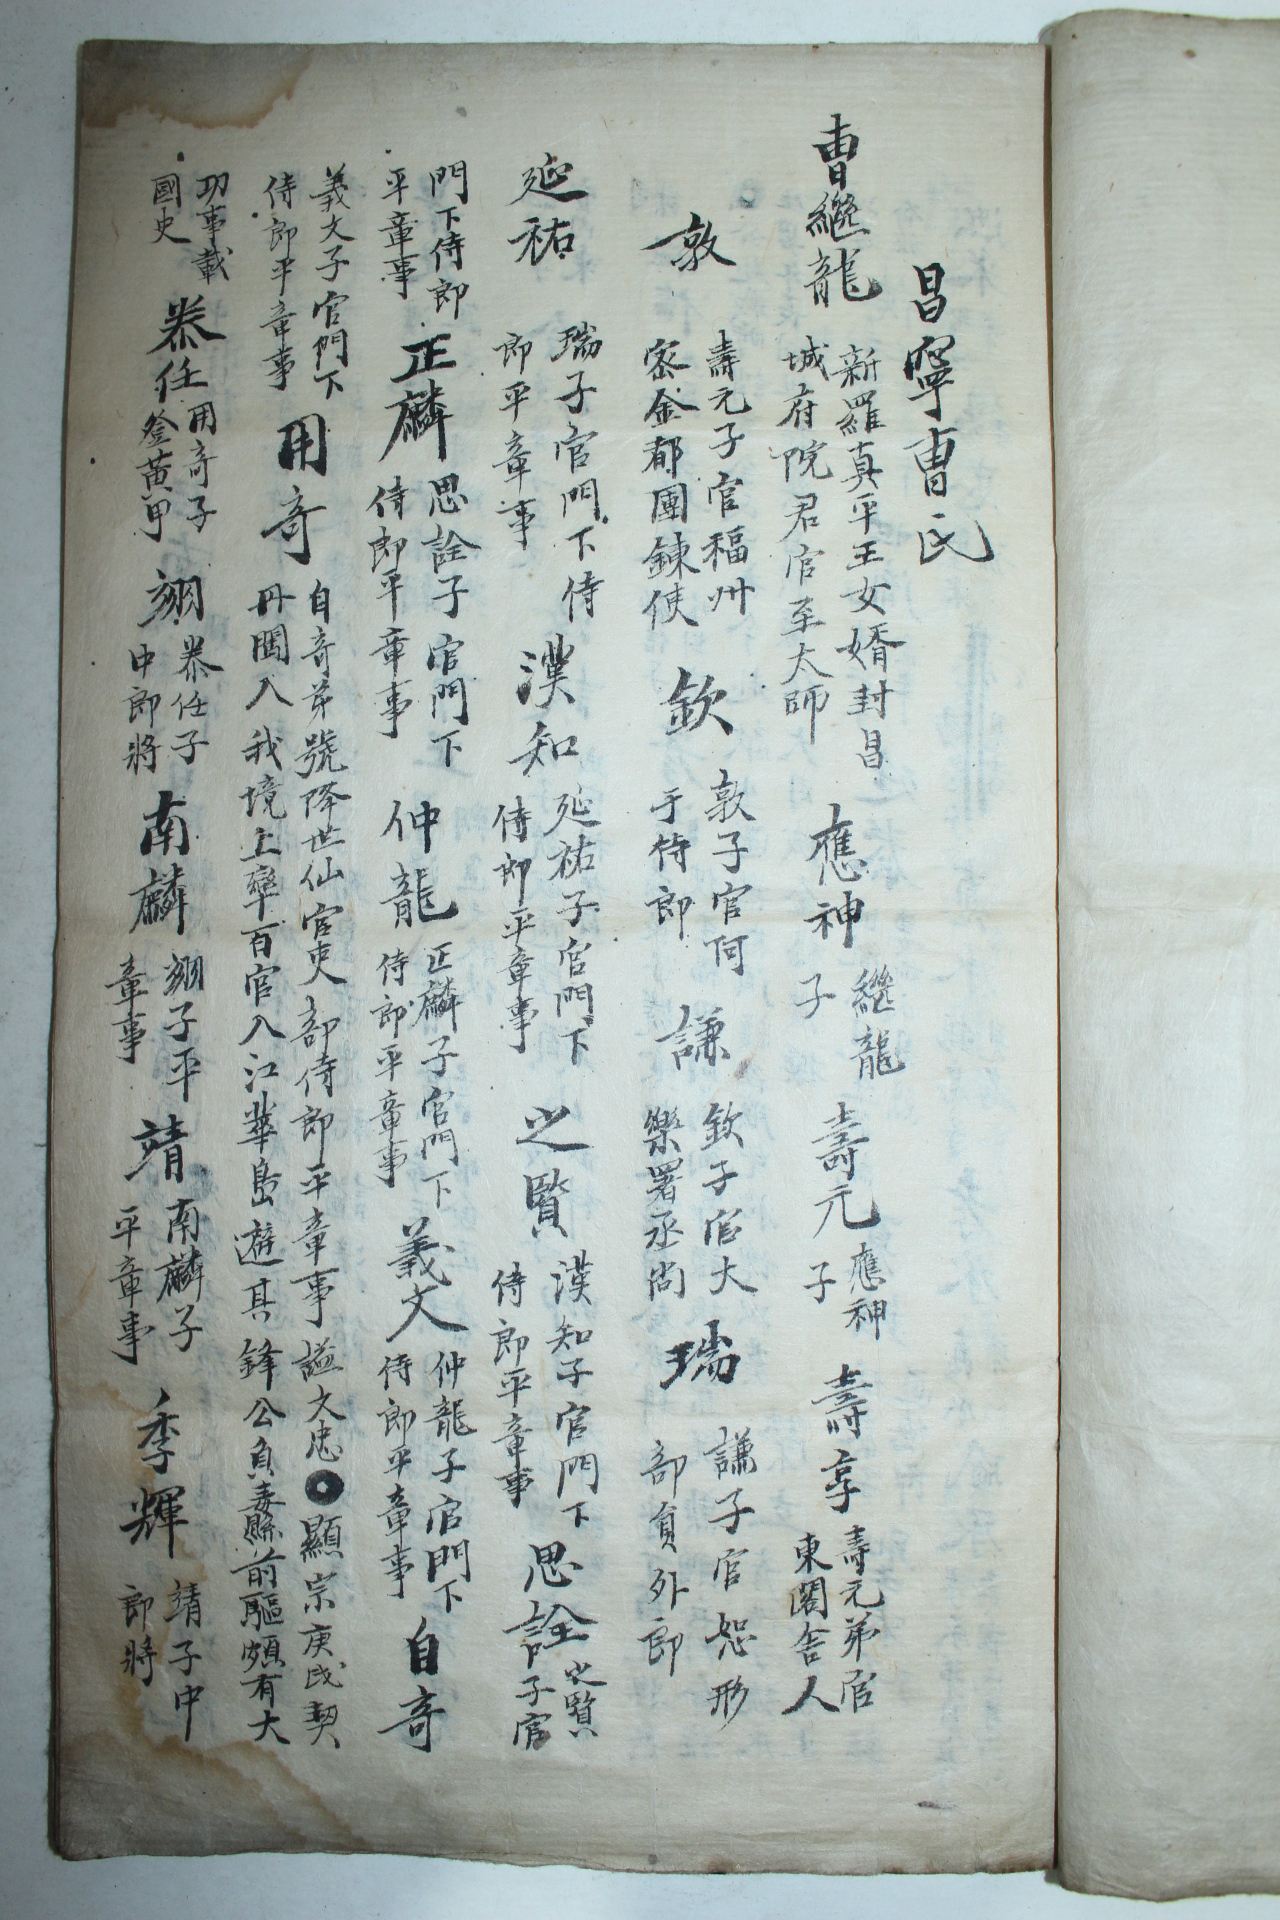 昌寧曺氏
曺繼龍 新羅真平王女婿封昌
城府院君官至太師 應神 繼龍
子 壽元 應神
子 壽亨 壽元弟官
東閣舍人
敦 壽元子官福州
密金都團鍊使 欽 敦子官何
于侍郎 謙 欽子官大
樂署丞尚 瑞 謙子官恕形
部負外郎
延祐 瑞子官門下侍
郎平章事 漢知 延祐子官門下
侍郎平章事 之賢 漢知子官門下
侍郎平章事 思詮 之賢
子官
門下侍郎
平章事 正麟 思詮子官門下
侍郎平章事 仲龍 正麟子官門下
侍郎平章事 義文 仲龍子官門下
侍郎平章事 自奇
義文子官門下
侍郎平章事 用奇 自奇弟號降世仙官吏部侍郎平章事謚文忠 顯宗庚戌契
丹闌入我境上率百官入江華島避其鋒公負毒縣前驅頗有大
功事載
國史 泰任 用奇子
登黃甲 翊 泰任子
中郎將 南麟 翊子平
章事 靖 南麟子
平章事 季輝 靖子中
郎將